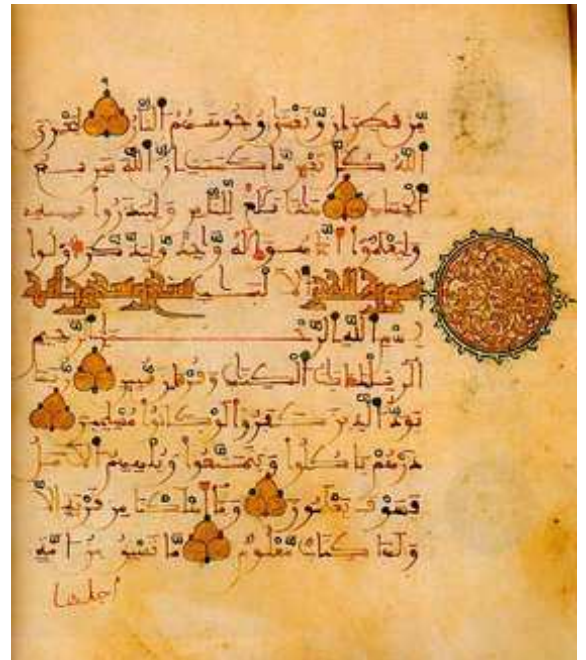 مّن قطران وّتغشى وجوههم النّار ليجزي
الله كلّ نفس مّا كسبت إنّ الله سريع
الحساب هذا بلغ لّلنّاس ولينذروا به
وليعلموا أنّما هو إله واحد وليذّكّر أولوا
سورة الحجر الالبب
بسم الله الرّحمن الرّحيم
الر تلك ءايت الكتب وقرءان مّبين رّبما
يودّ الذين كفروا لو كانوا مسلمين
ذرهم ياكلوا ويتمتّعوا ويلههم الامل
فسوف يعلمون وما أهلكنا من قرية الّا
ولها كتاب مّعلوم مّا تسبق من امّة
اجلها